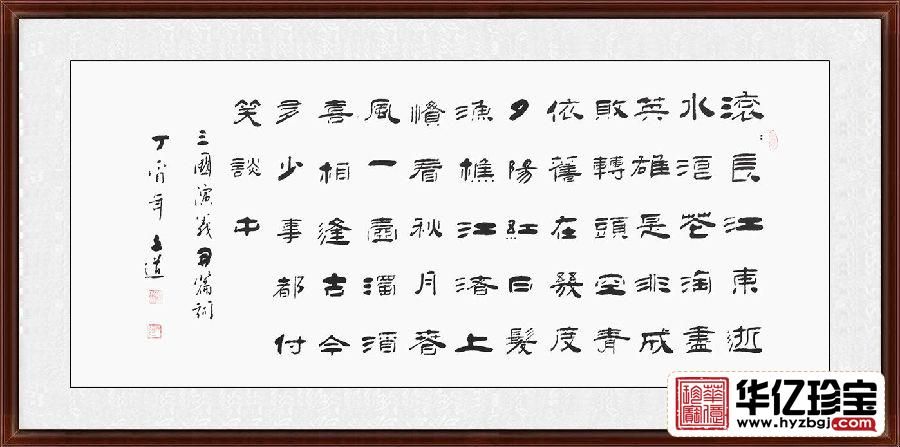 滚:長江東逝
水浪花淘盡
英雄是非成
敗轉頭空青
依舊在幾度
夕陽紅白髮
漁樵江渚上
慣看秋月春
風一壺濁酒
喜相逢古今
多少事都付
笑談中
三國演義開篇詞
丁酉年
華億珍寶
华亿珍宝
www.hyzbgj.com